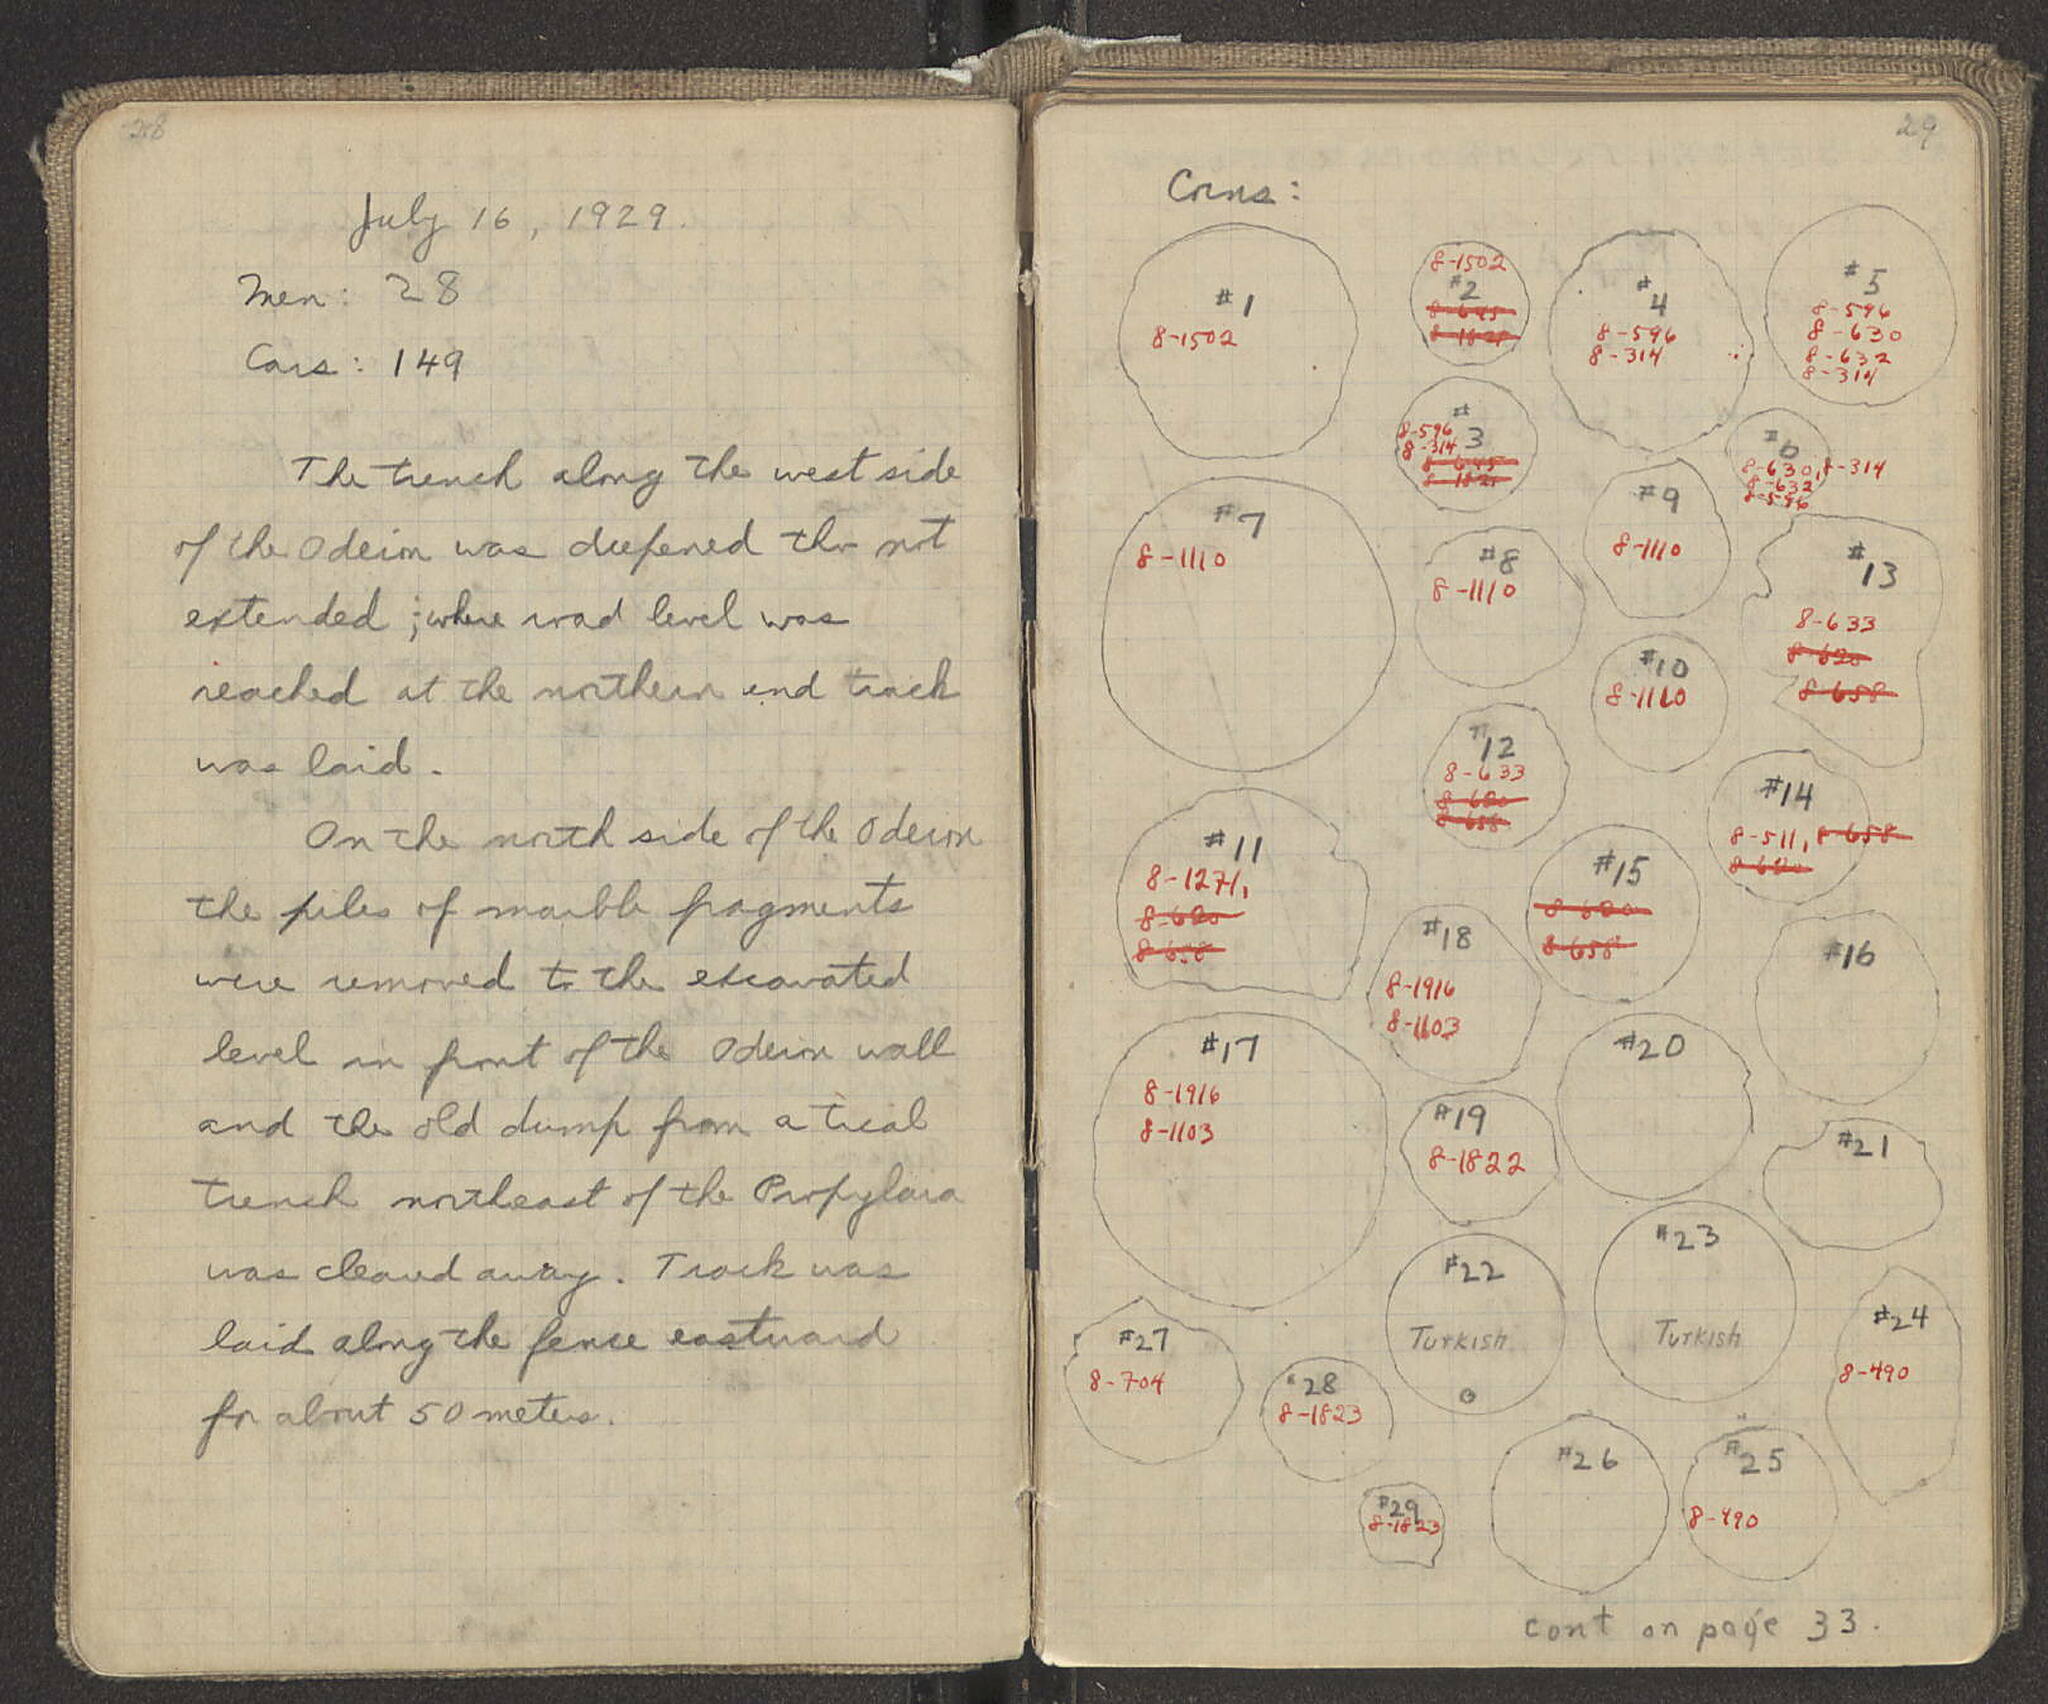 28
July 16, 1929.
Men: 28
Cars: 149
The trench along the west side
of the Odeion was deepened tho not
extended; where road level was
reached at the northern end track
was laid.
On the north side of the Odeion
the piles of marble fragments
were removed to the excavated
level in front of the Odeion wall
and the old dump from a trial
trench northeast of the Propylaia
was cleared away. Track was
laid along the fence eastward
for about 50 meters.
29
Coins:
#1
8-1502
8-1502
#2
8-645
#4
8-596
8-314
#5
8-596
8-630
8-632
8-314
#3
8-596
8-314
8-645
#6
8-630, 8-314
8-632
8-596
#7
8-1110
#8
8-1110
#9
8-1110
#13
8-633
8-620
8-658
#10
8-1110
#12
8-633
8-600
8-658
#14
8-511, 8-658
8-600
#11
8-1271,
8-600
8-658
#15
8-600
8-658
#18
8-1916
8-1103
#16
#17
8-1916
8-1103
#20
#19
8-1822
#21
#22
Turkish
#23
Turkish
#24
8-490
#27
8-704
#28
8-1823
#26
#25
8-490
#29
8-1823
cont on page 33.